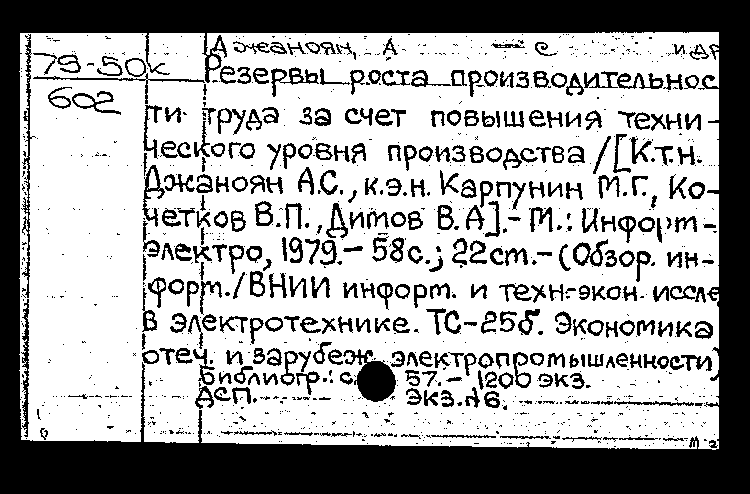 Джаноян, А — С и др
79-50к Резервы роста производительнос
602 ти труда за счет повышения техни-
ческого уровня производства /[К.т.н.
Джаноян А.С., к.э.н. Карпунин М.Г., Ко-
четков В.П., Димов В.А].- М.: Информ-
электро, 1979.- 58с.; 22см.- (Обзор. ин-
форм./ВНИИ информ. и техн.-экон. иссле
в электротехнике. ТС-25б. Экономика
отеч. и зарубеж. электропромышленности)
Библиогр.: с. 57.- 1200 экз.
ДСП. экз.№6.